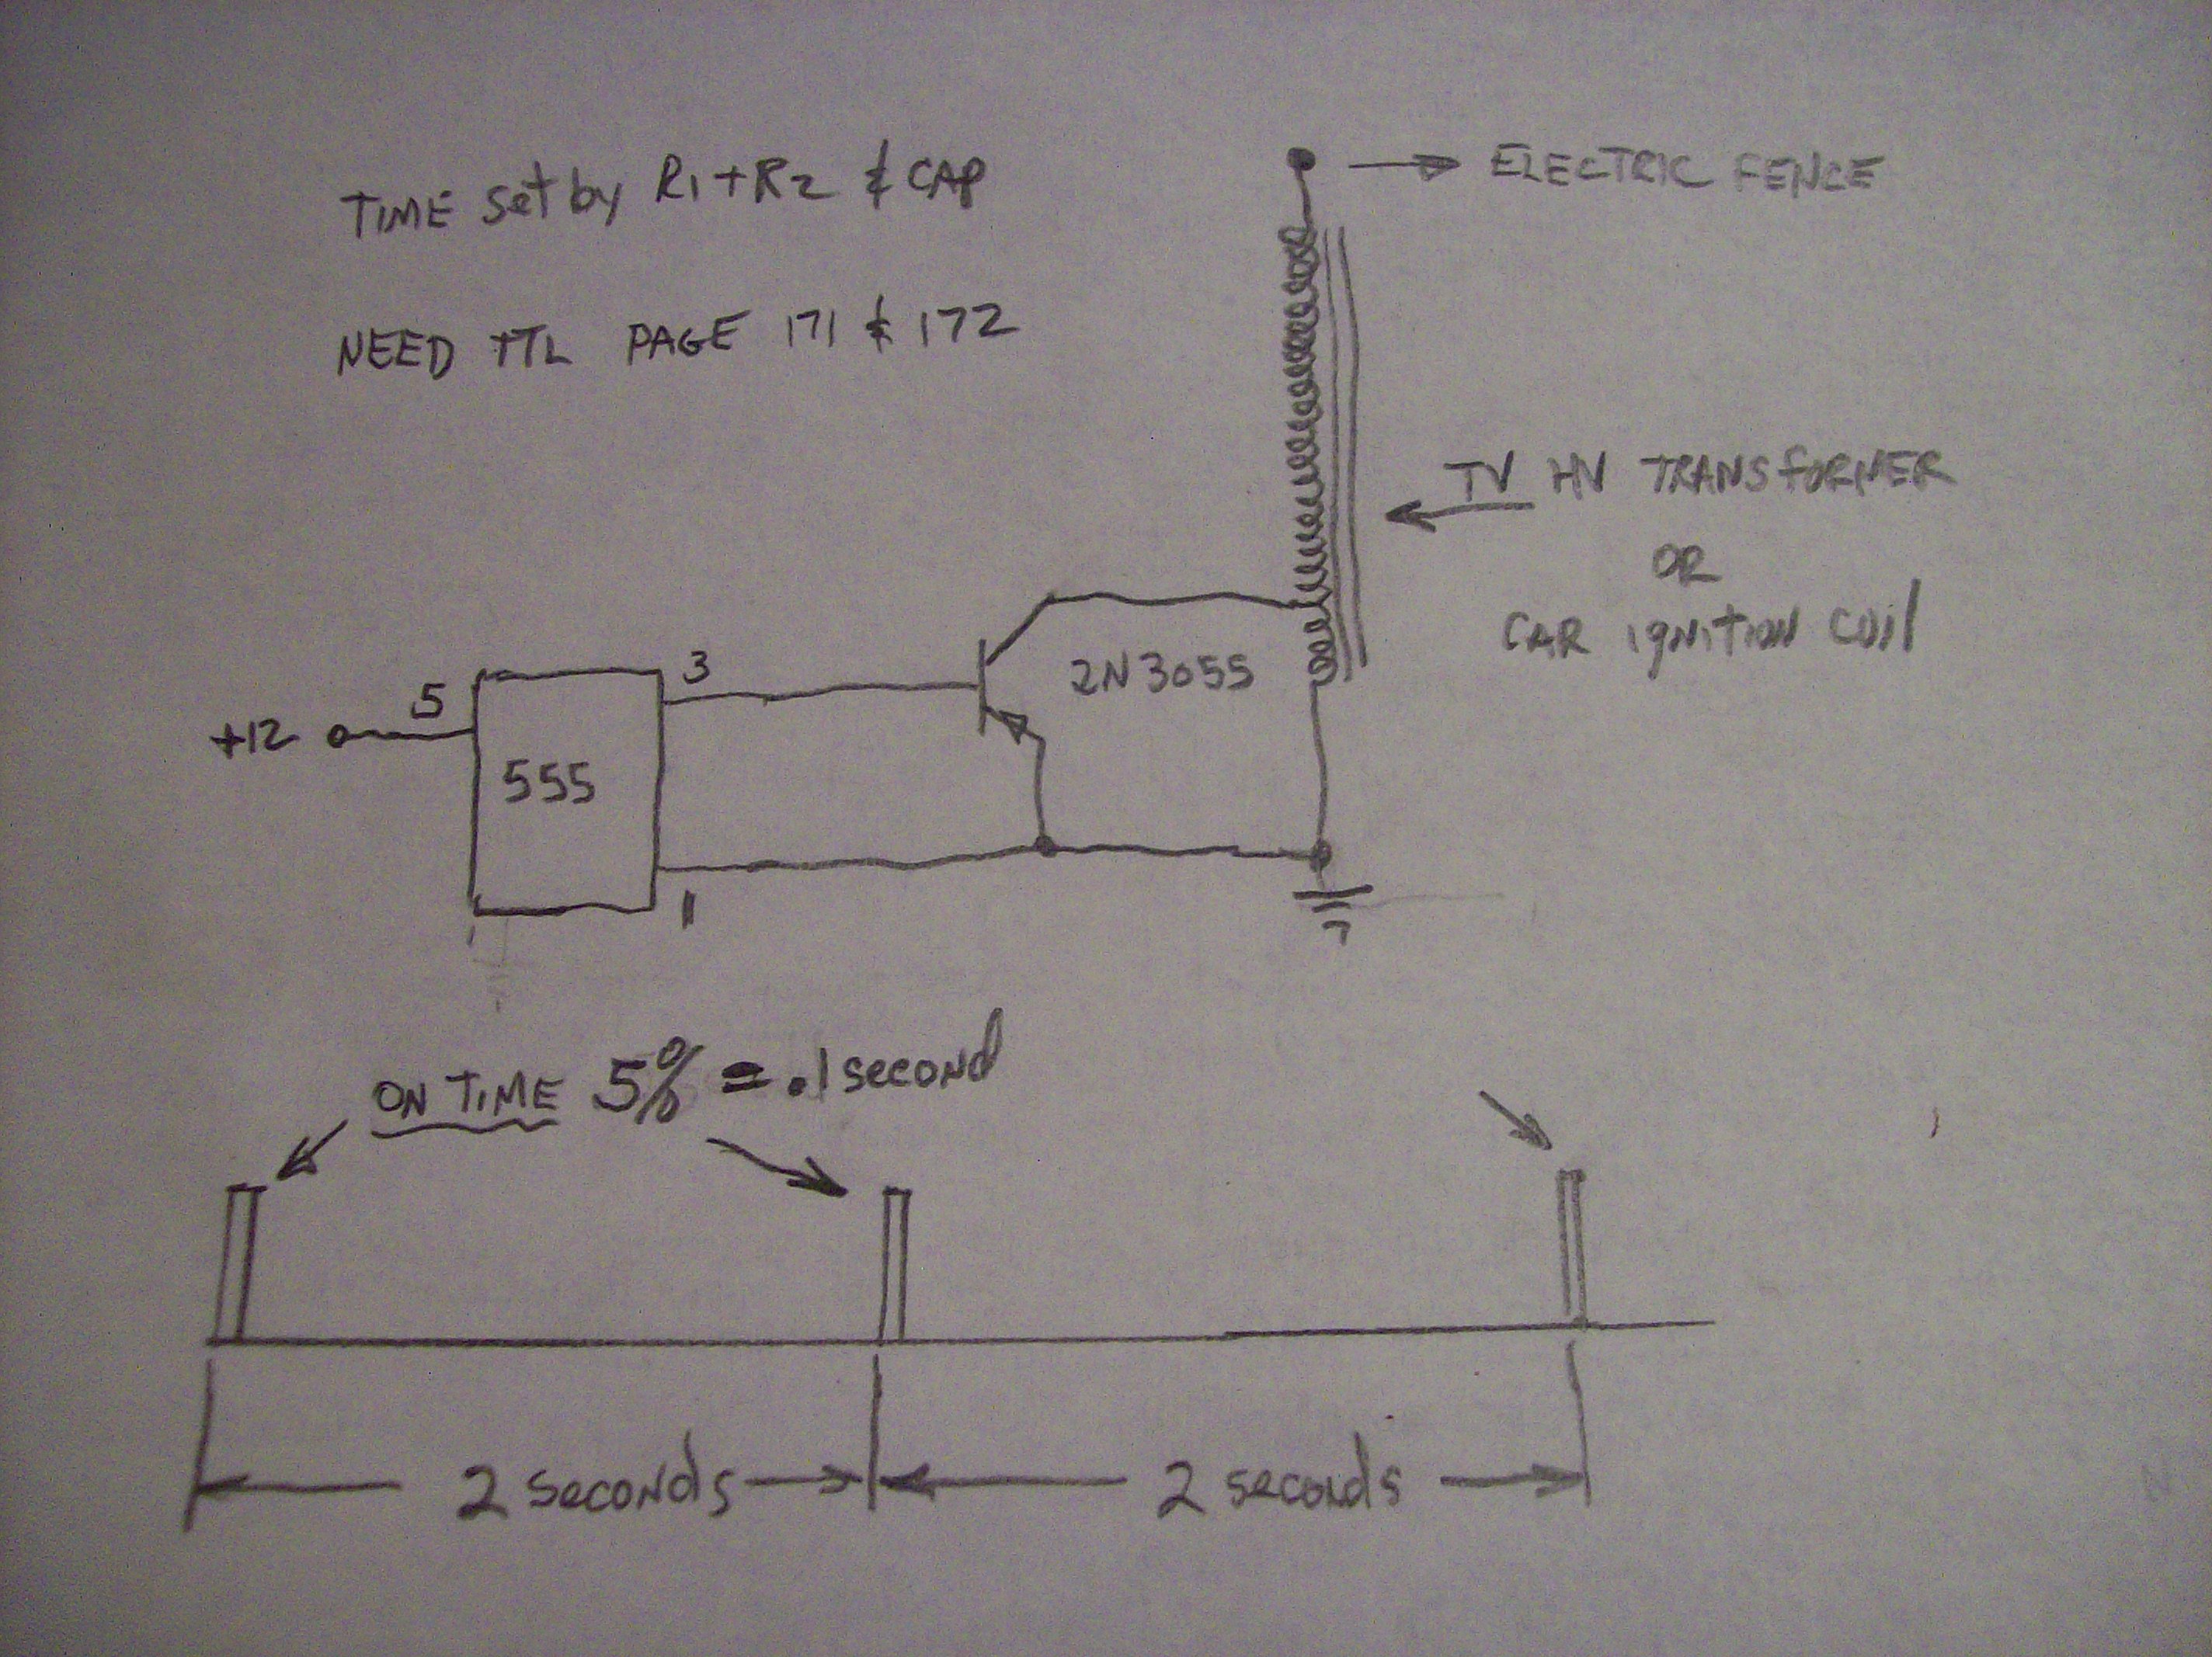 TIME set by R1+R2 & CAP
NEED TTL PAGE 171 & 172
ELECTRIC FENCE
TV HV TRANSFORMER
OR
CAR IGNITION COIL
+12
5
555
3
1
2N3055
ON TIME 5% = .1 second
2 seconds
2 seconds